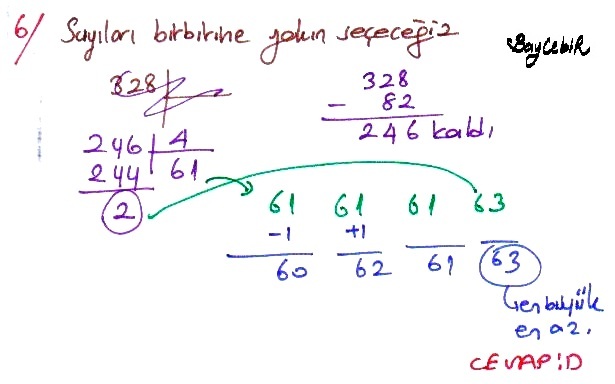 6/ Sayıları birbirine yakın seçeceğiz
BayCebir
328
328
- 82
246 kaldı
246 4
244 61
2
61 61 61 63
-1 +1
60 62 61 63
en büyük
en az.
CEVAP: D